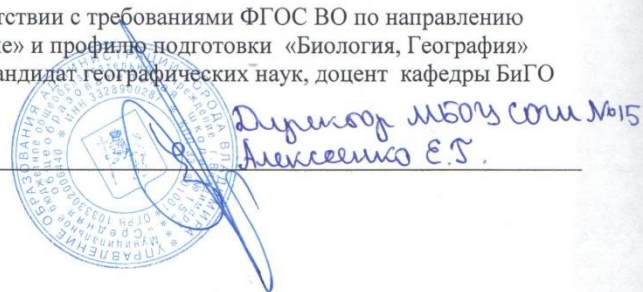 тствии с требованиями ФГОС ВО по направлению
е» и профилю подготовки «Биология, География»
андидат географических наук, доцент кафедры БиГО
Директор МБОУ СОШ №15
Алексеенко Е.Г.
УПРАВЛЕНИЕ ОБРАЗОВАНИЯ АДМИНИСТРАЦИИ ГОРОДА ВЛАДИМИРА
ИНН 3328900287